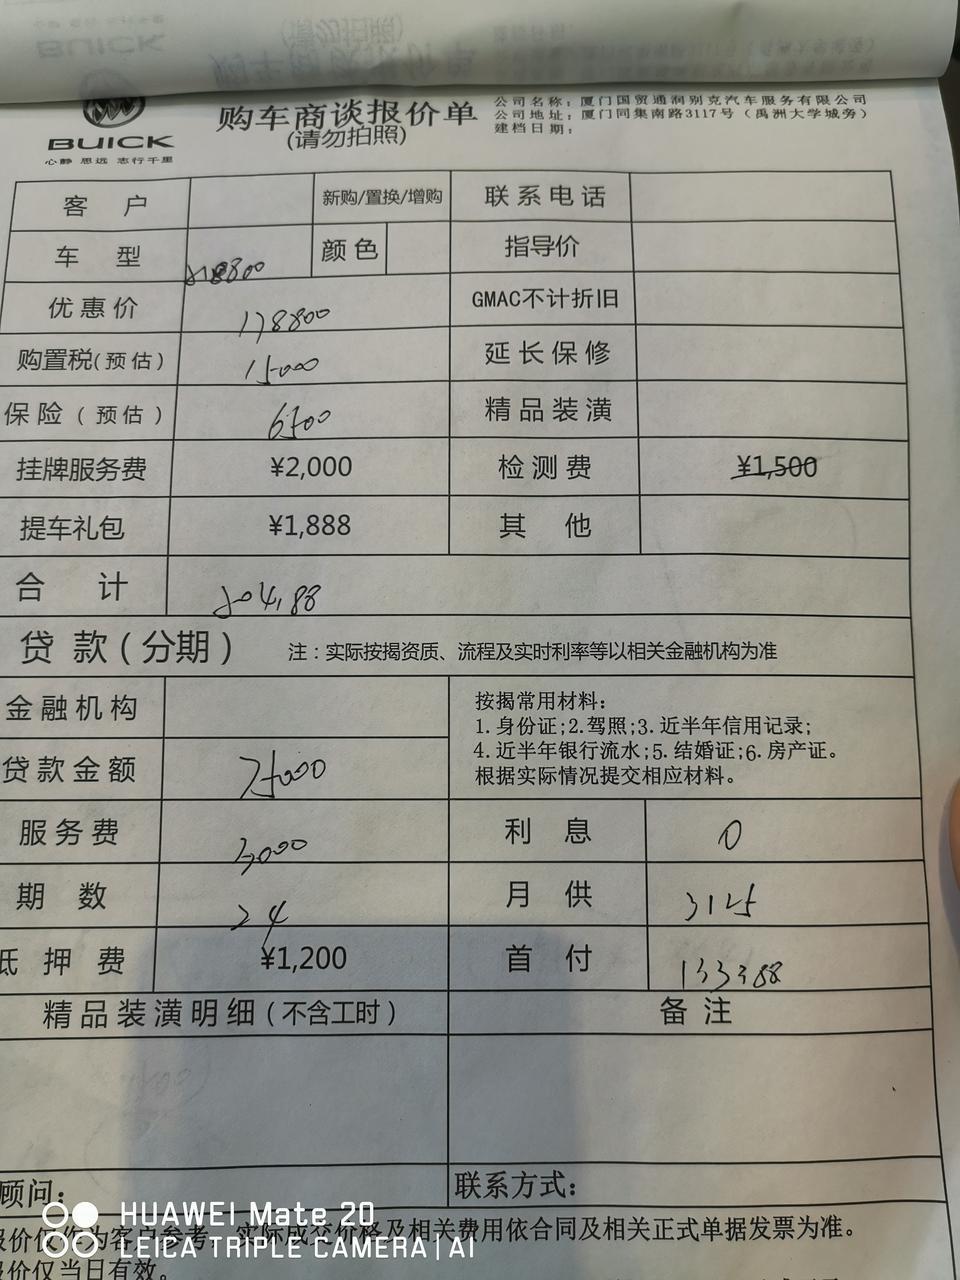 BUICK
心静 思远 志行千里
购车商谈报价单
(请勿拍照)
公司名称：厦门国贸通润别克汽车服务有限公司
公司地址：厦门同集南路3117号（禹洲大学城旁）
建档日期：
客 户 新购/置换/增购 联系电话
车 型 218800 颜色 指导价
优惠价 178800 GMAC不计折旧
购置税(预估) 15000 延长保修
保险(预估) 6500 精品装潢
挂牌服务费 ¥2,000 检测费 ¥1,500
提车礼包 ¥1,888 其 他
合 计 204188
贷 款（分期） 注：实际按揭资质、流程及实时利率等以相关金融机构为准
金融机构
按揭常用材料：
1.身份证;2.驾照;3.近半年信用记录;
4.近半年银行流水;5.结婚证;6.房产证。
根据实际情况提交相应材料。
贷款金额 75000
服务费 3000 利 息 0
期 数 24 月 供 3125
抵 押 费 ¥1,200 首 付 133388
精品装潢明细（不含工时） 备 注
顾问： 联系方式：
报价仅作为客户参考，实际成交价格及相关费用依合同及相关正式单据发票为准。
报价仅当日有效。
HUAWEI Mate 20
LEICA TRIPLE CAMERA | AI